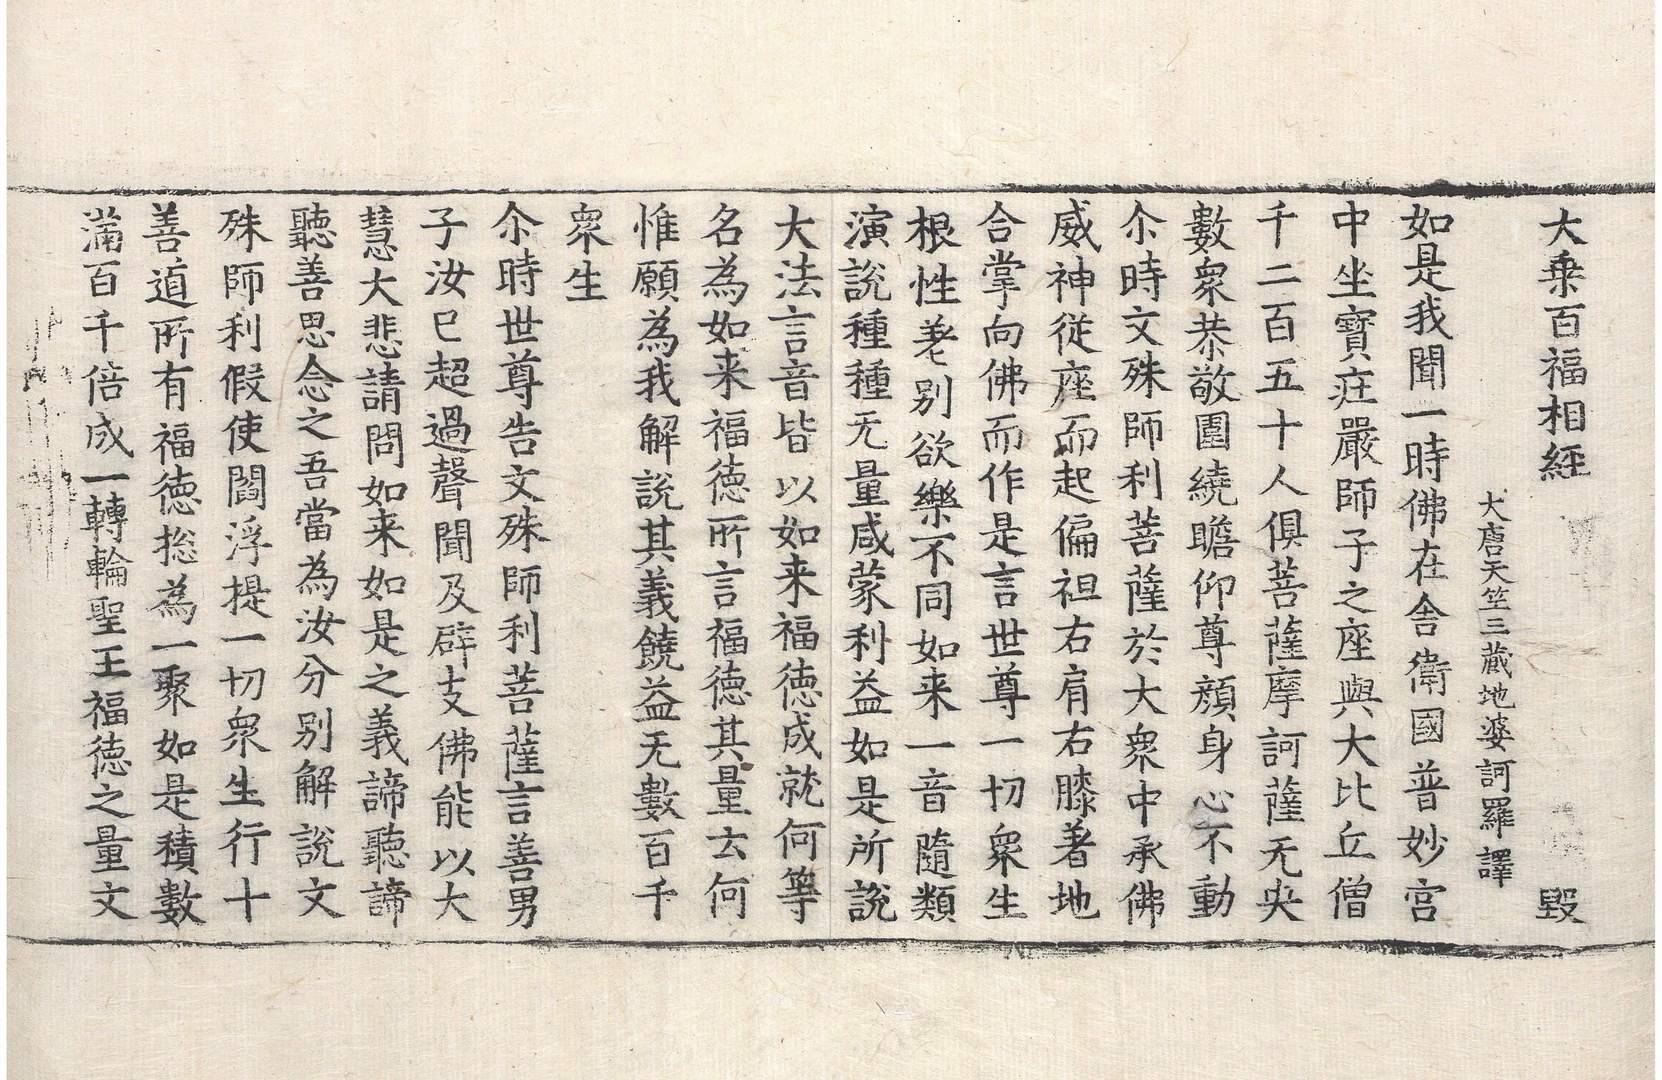 大乗百福相經 毀
大唐天竺三藏地婆訶羅譯
如是我聞一時佛在舍衛國普妙宮
中坐寶㽵嚴師子之座與大比丘僧
千二百五十人俱菩薩摩訶薩无央
數衆恭敬圍繞瞻仰尊顔身心不動
尒時文殊師利菩薩於大衆中承佛
威神従座而起偏袒右肩右膝著地
合掌向佛而作是言世尊一切衆生
根性差别欲樂不同如来一音隨類
演說種種无量咸蒙利益如是所說
大法言音皆以如来福徳成就何等
名為如来福徳所言福徳其量云何
惟願為我解說其義饒益无數百千
衆生
尒時世尊告文殊師利菩薩言善男
子汝已超過聲聞及辟支佛能以大
慧大悲請問如来如是之義諦聽諦
聽善思念之吾當為汝分别解說文
殊師利假使閻浮提一切衆生行十
善道所有福徳捴為一聚如是積數
滿百千倍成一轉輪聖王福徳之量文